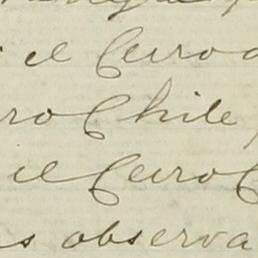 el Cerro
ro Chile
el Cerro C
s observa